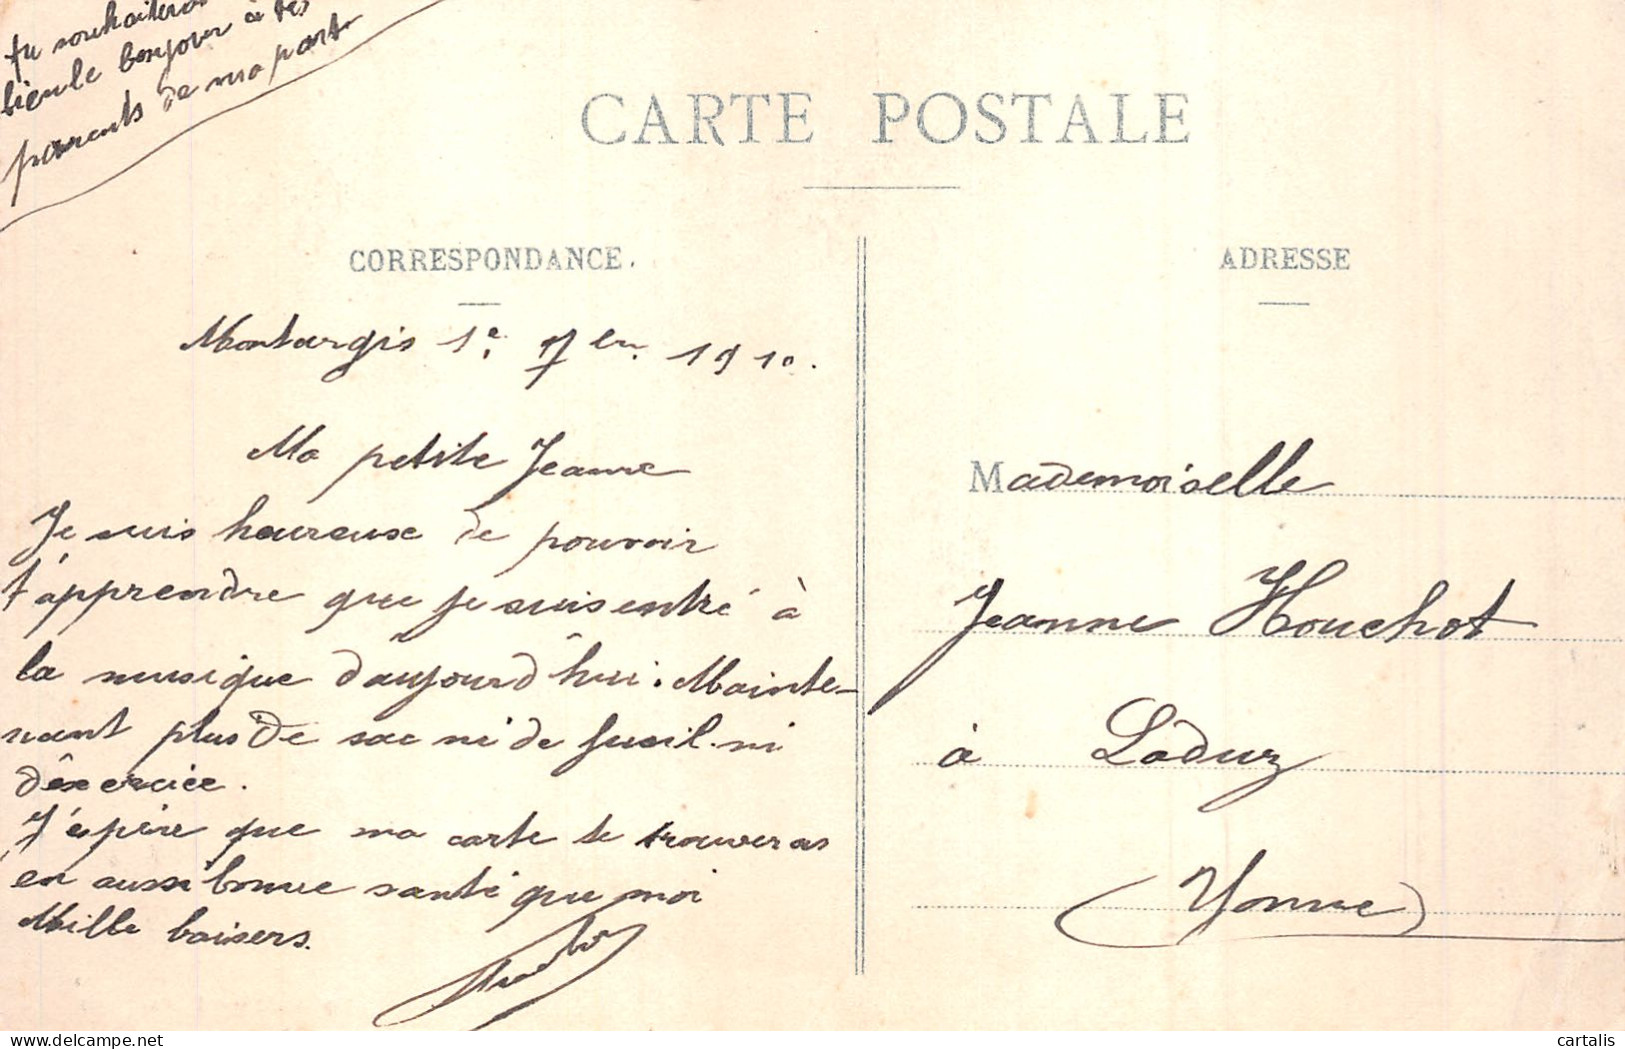 tu souhaiteras
bien le bonjour à tes
parents de ma part
CARTE POSTALE
CORRESPONDANCE.
ADRESSE
Montargis 1e 7bre 1910.
Ma petite Jeanne
Je suis heureuse de pouvoir
t'apprendre que je suis entré à
la musique d'aujourd'hui. Mainte-
nant plus de sac ni de fusil ni
d'exercice.
J'éspère que ma carte te trouveras
en aussi bonne santé que moi
Mille baisers.
Mademoiselle
Jeanne Houchot
à Laduz
(Yonne)
delcampe.net
cartalis